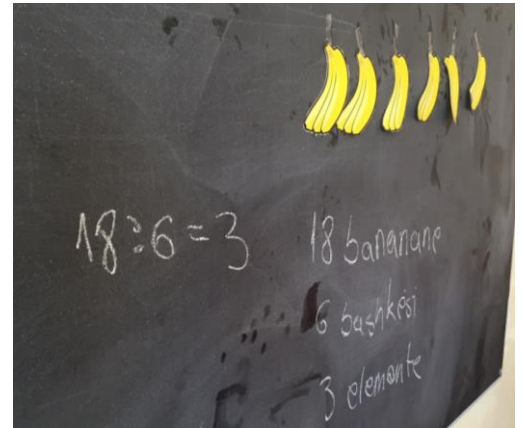 18:6=3
18 bananane
6 bashkësi
3 elemente